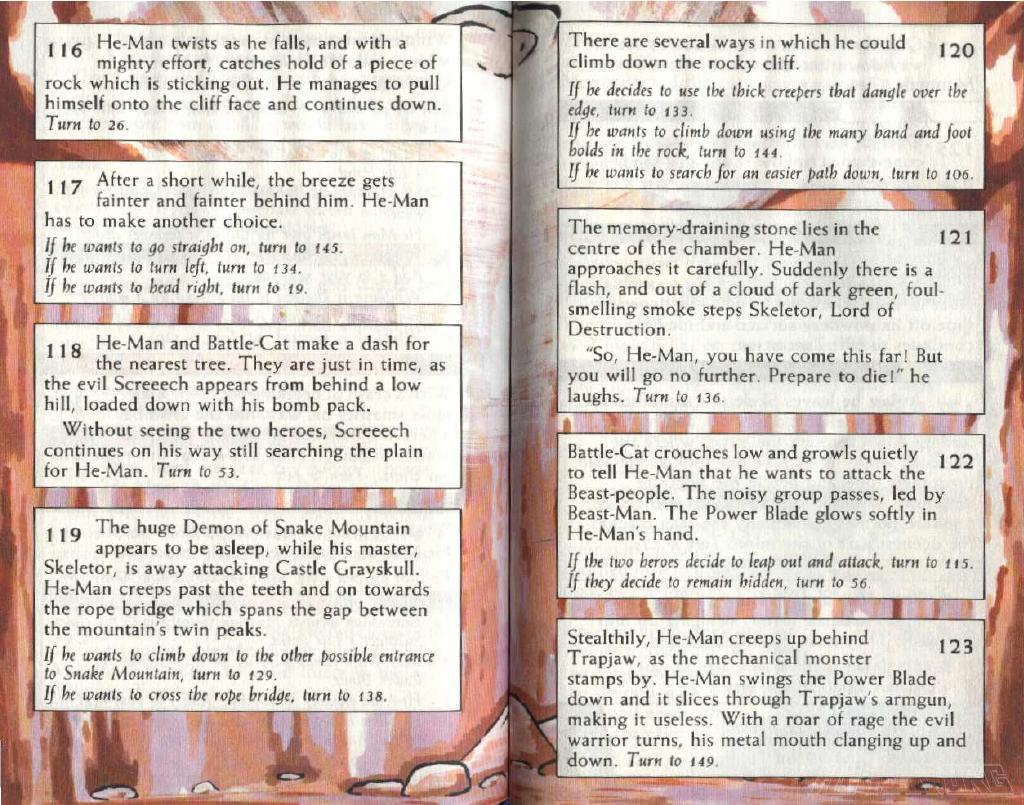 116 He-Man twists as he falls, and with a
mighty effort, catches hold of a piece of
rock which is sticking out. He manages to pull
himself onto the cliff face and continues down.
Turn to 26.
117 After a short while, the breeze gets
fainter and fainter behind him. He-Man
has to make another choice.
If he wants to go straight on, turn to 145.
If he wants to turn left, turn to 134.
If he wants to head right, turn to 19.
118 He-Man and Battle-Cat make a dash for
the nearest tree. They are just in time, as
the evil Screeech appears from behind a low
hill, loaded down with his bomb pack.
Without seeing the two heroes, Screeech
continues on his way still searching the plain
for He-Man. Turn to 53.
119 The huge Demon of Snake Mountain
appears to be asleep, while his master,
Skeletor, is away attacking Castle Grayskull.
He-Man creeps past the teeth and on towards
the rope bridge which spans the gap between
the mountain's twin peaks.
If he wants to climb down to the other possible entrance
to Snake Mountain, turn to 129.
If he wants to cross the rope bridge, turn to 138.
There are several ways in which he could 120
climb down the rocky cliff.
If he decides to use the thick creepers that dangle over the
edge, turn to 133.
If he wants to climb down using the many hand and foot
holds in the rock, turn to 144.
If he wants to search for an easier path down, turn to 106.
The memory-draining stone lies in the 121
centre of the chamber. He-Man
approaches it carefully. Suddenly there is a
flash, and out of a cloud of dark green, foul-
smelling smoke steps Skeletor, Lord of
Destruction.
"So, He-Man, you have come this far! But
you will go no further. Prepare to die!" he
laughs. Turn to 136.
Battle-Cat crouches low and growls quietly 122
to tell He-Man that he wants to attack the
Beast-people. The noisy group passes, led by
Beast-Man. The Power Blade glows softly in
He-Man's hand.
If the two heroes decide to leap out and attack, turn to 115.
If they decide to remain hidden, turn to 56.
Stealthily, He-Man creeps up behind 123
Trapjaw, as the mechanical monster
stamps by. He-Man swings the Power Blade
down and it slices through Trapjaw's armgun,
making it useless. With a roar of rage the evil
warrior turns, his metal mouth clanging up and
down. Turn to 149.